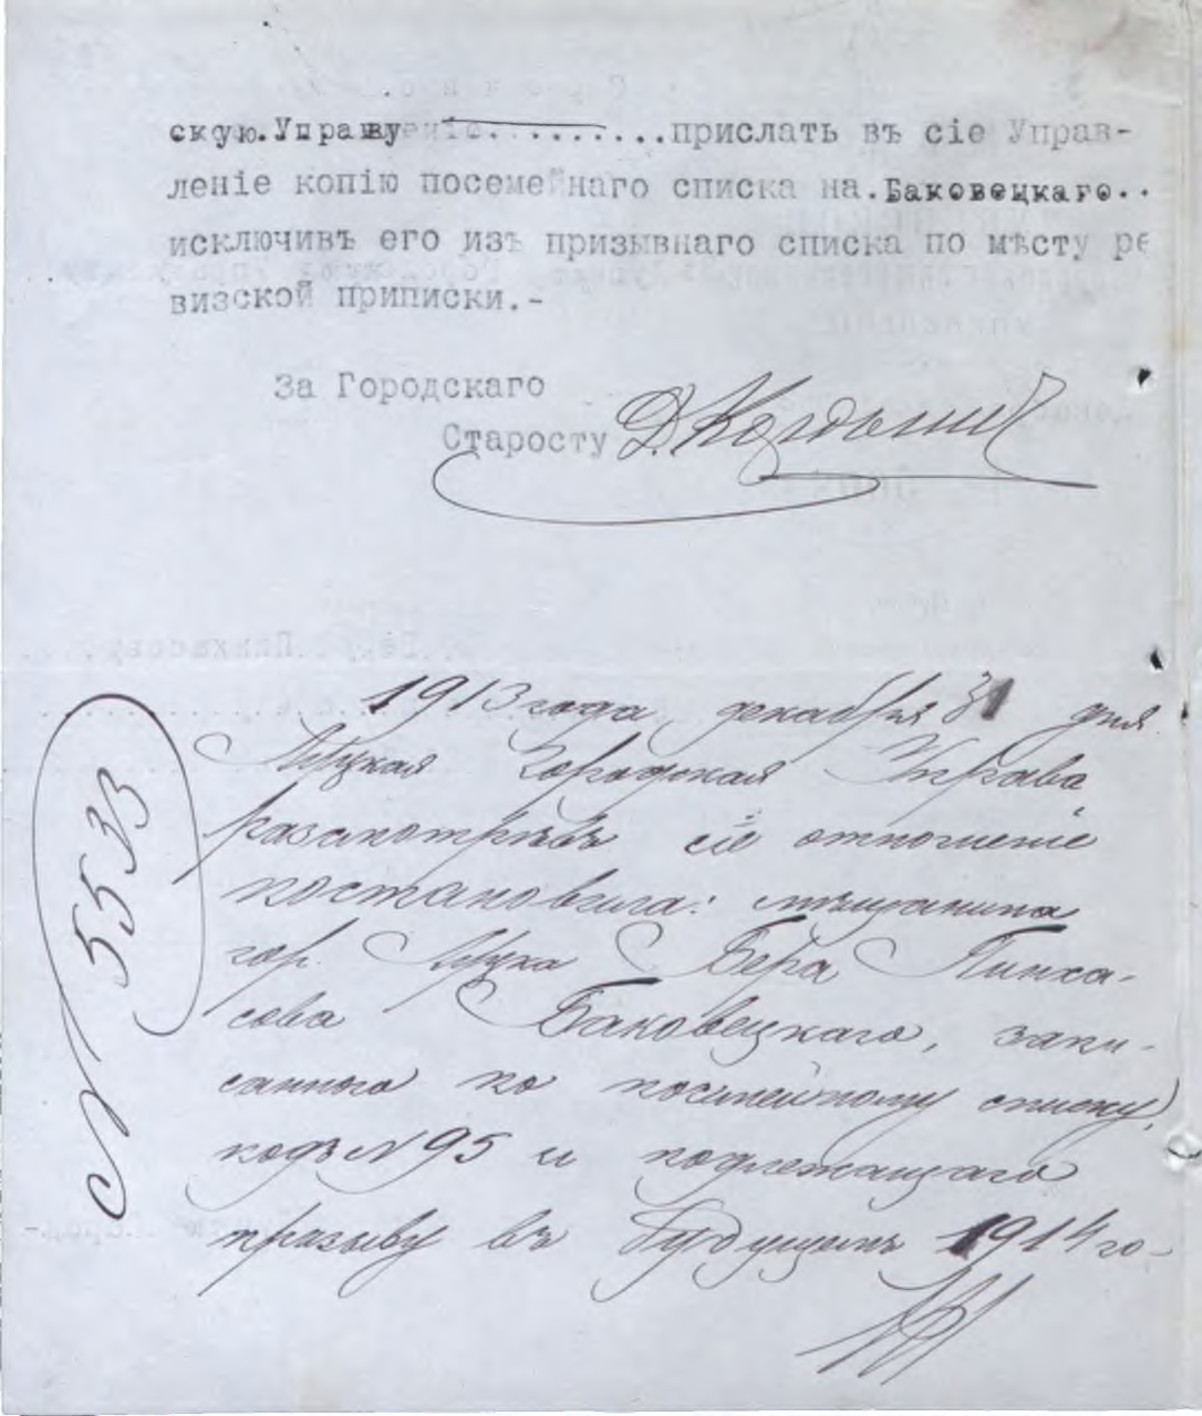 скую.Управу..........прислать въ сіе Управ-
леніе копію посемейнаго списка на.Баковецкаго..
исключивъ его изъ призывнаго списка по мѣсту ре
визской приписки.-
За Городскаго
Старосту
1913 года декабря 31 дня
Луцкая Городская Управа
разсмотрѣвъ сіе отношеніе
постановила: мѣщанина
гор. Луцка Бера Пинха-
сова Баковецкаго, запи-
саннаго по посемейному списку
подъ N 95 и подлежащаго
призыву въ будущемъ 1914 го-
N 5533